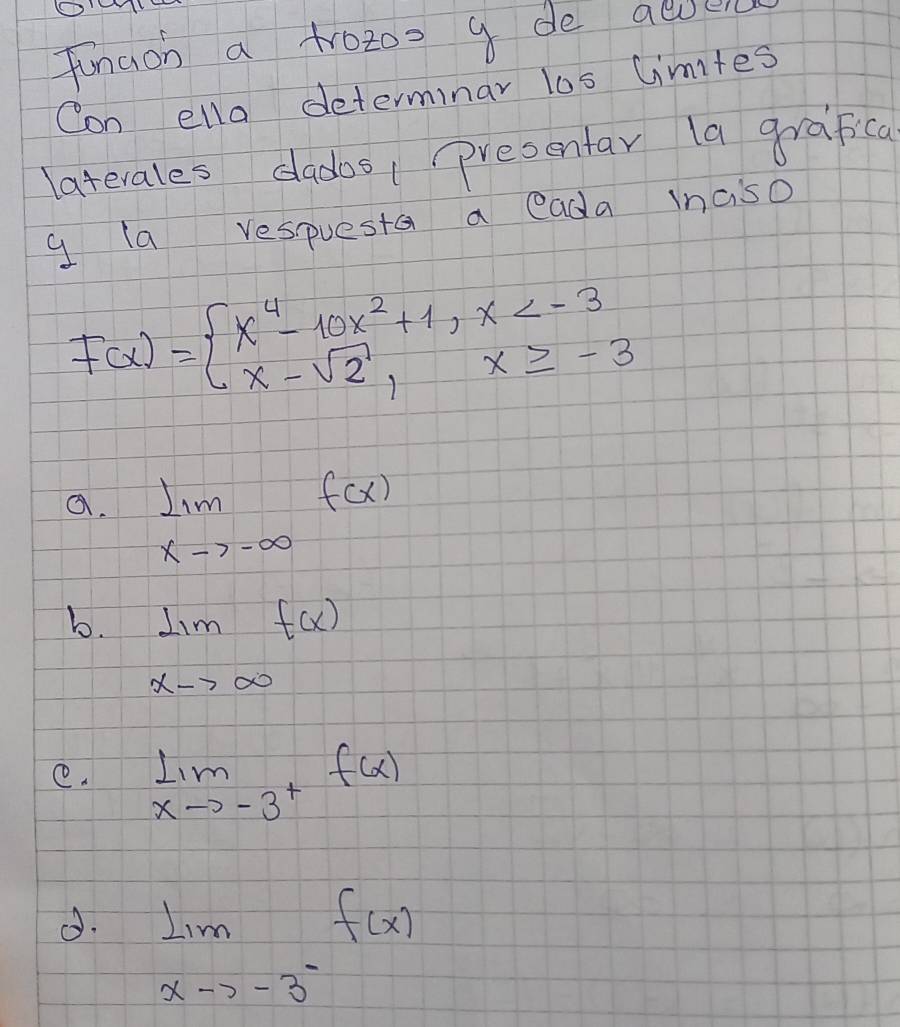 función a trozos y de
Con ella determinar los límites
laterales dados, Presentar la gráfica
y la respuesta a cada inciso
F(x) = { x⁴ - 10x² + 1, x < -3
x - √2, x ≥ -3
a. Lim f(x)
x -> -∞
b. Lim f(x)
x -> ∞
c. Lim f(x)
x -> -3⁺
d. Lim f(x)
x -> -3⁻